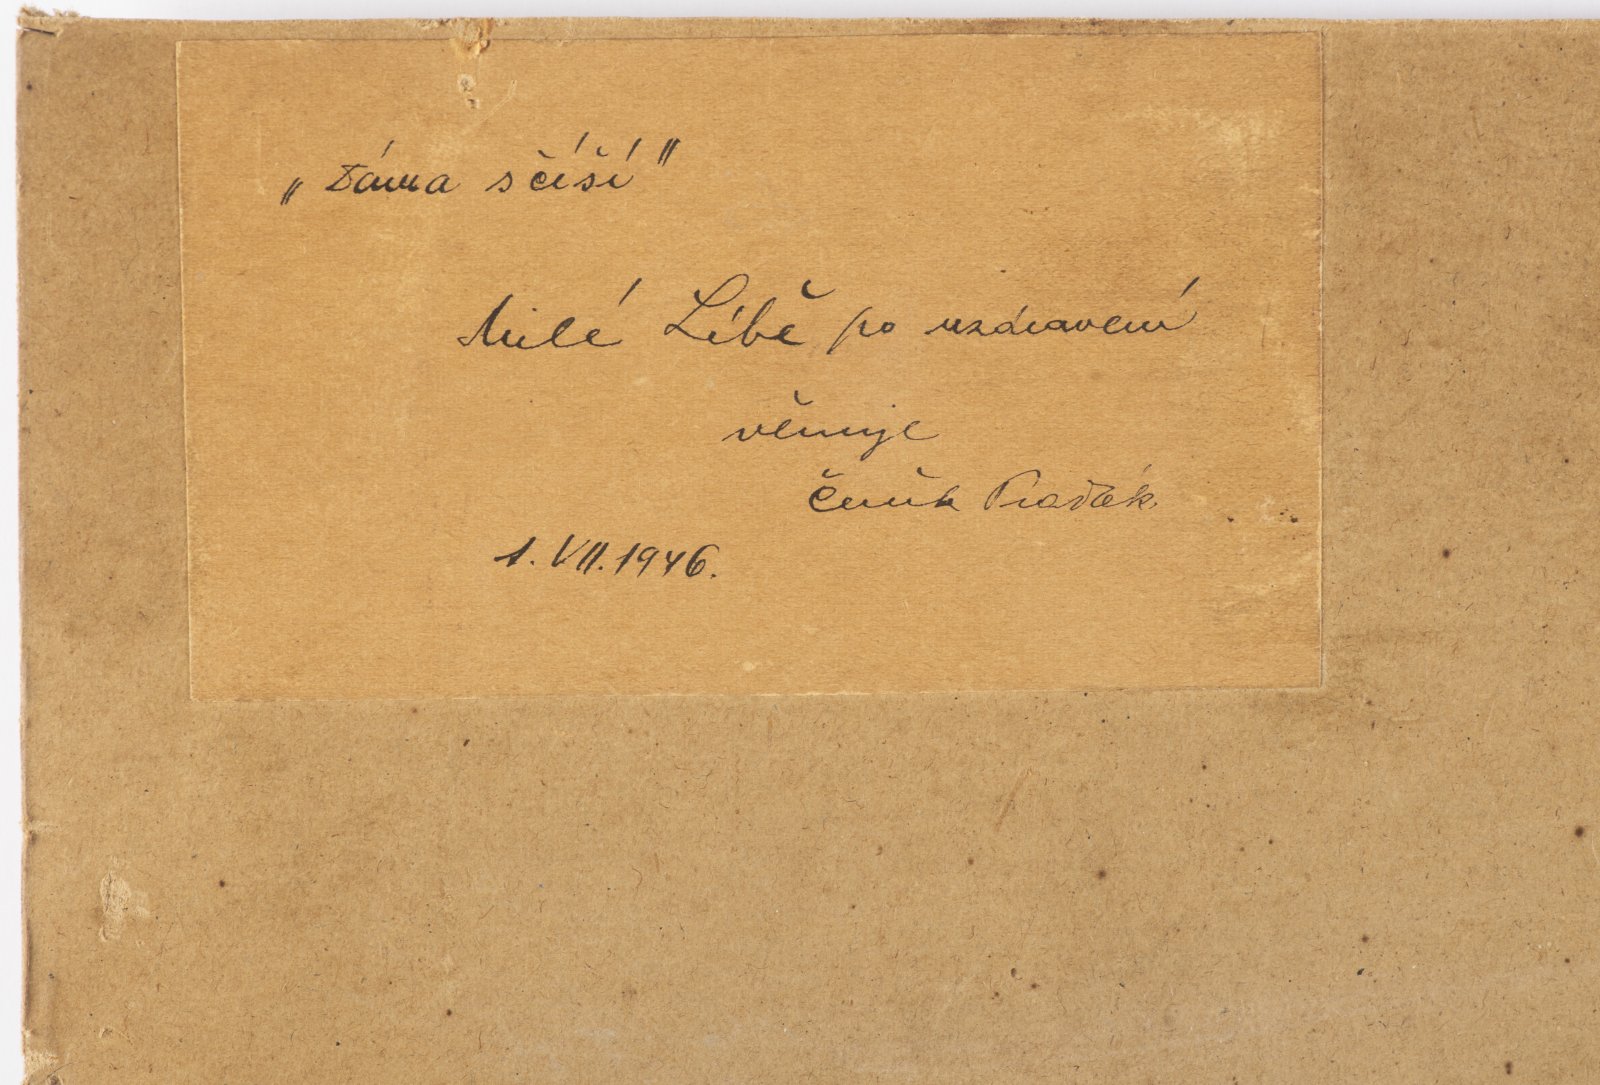 „Dáma s číší"
Milé Libě po uzdravení
věnuje
Čeněk Praďák.
1. VII. 1946.